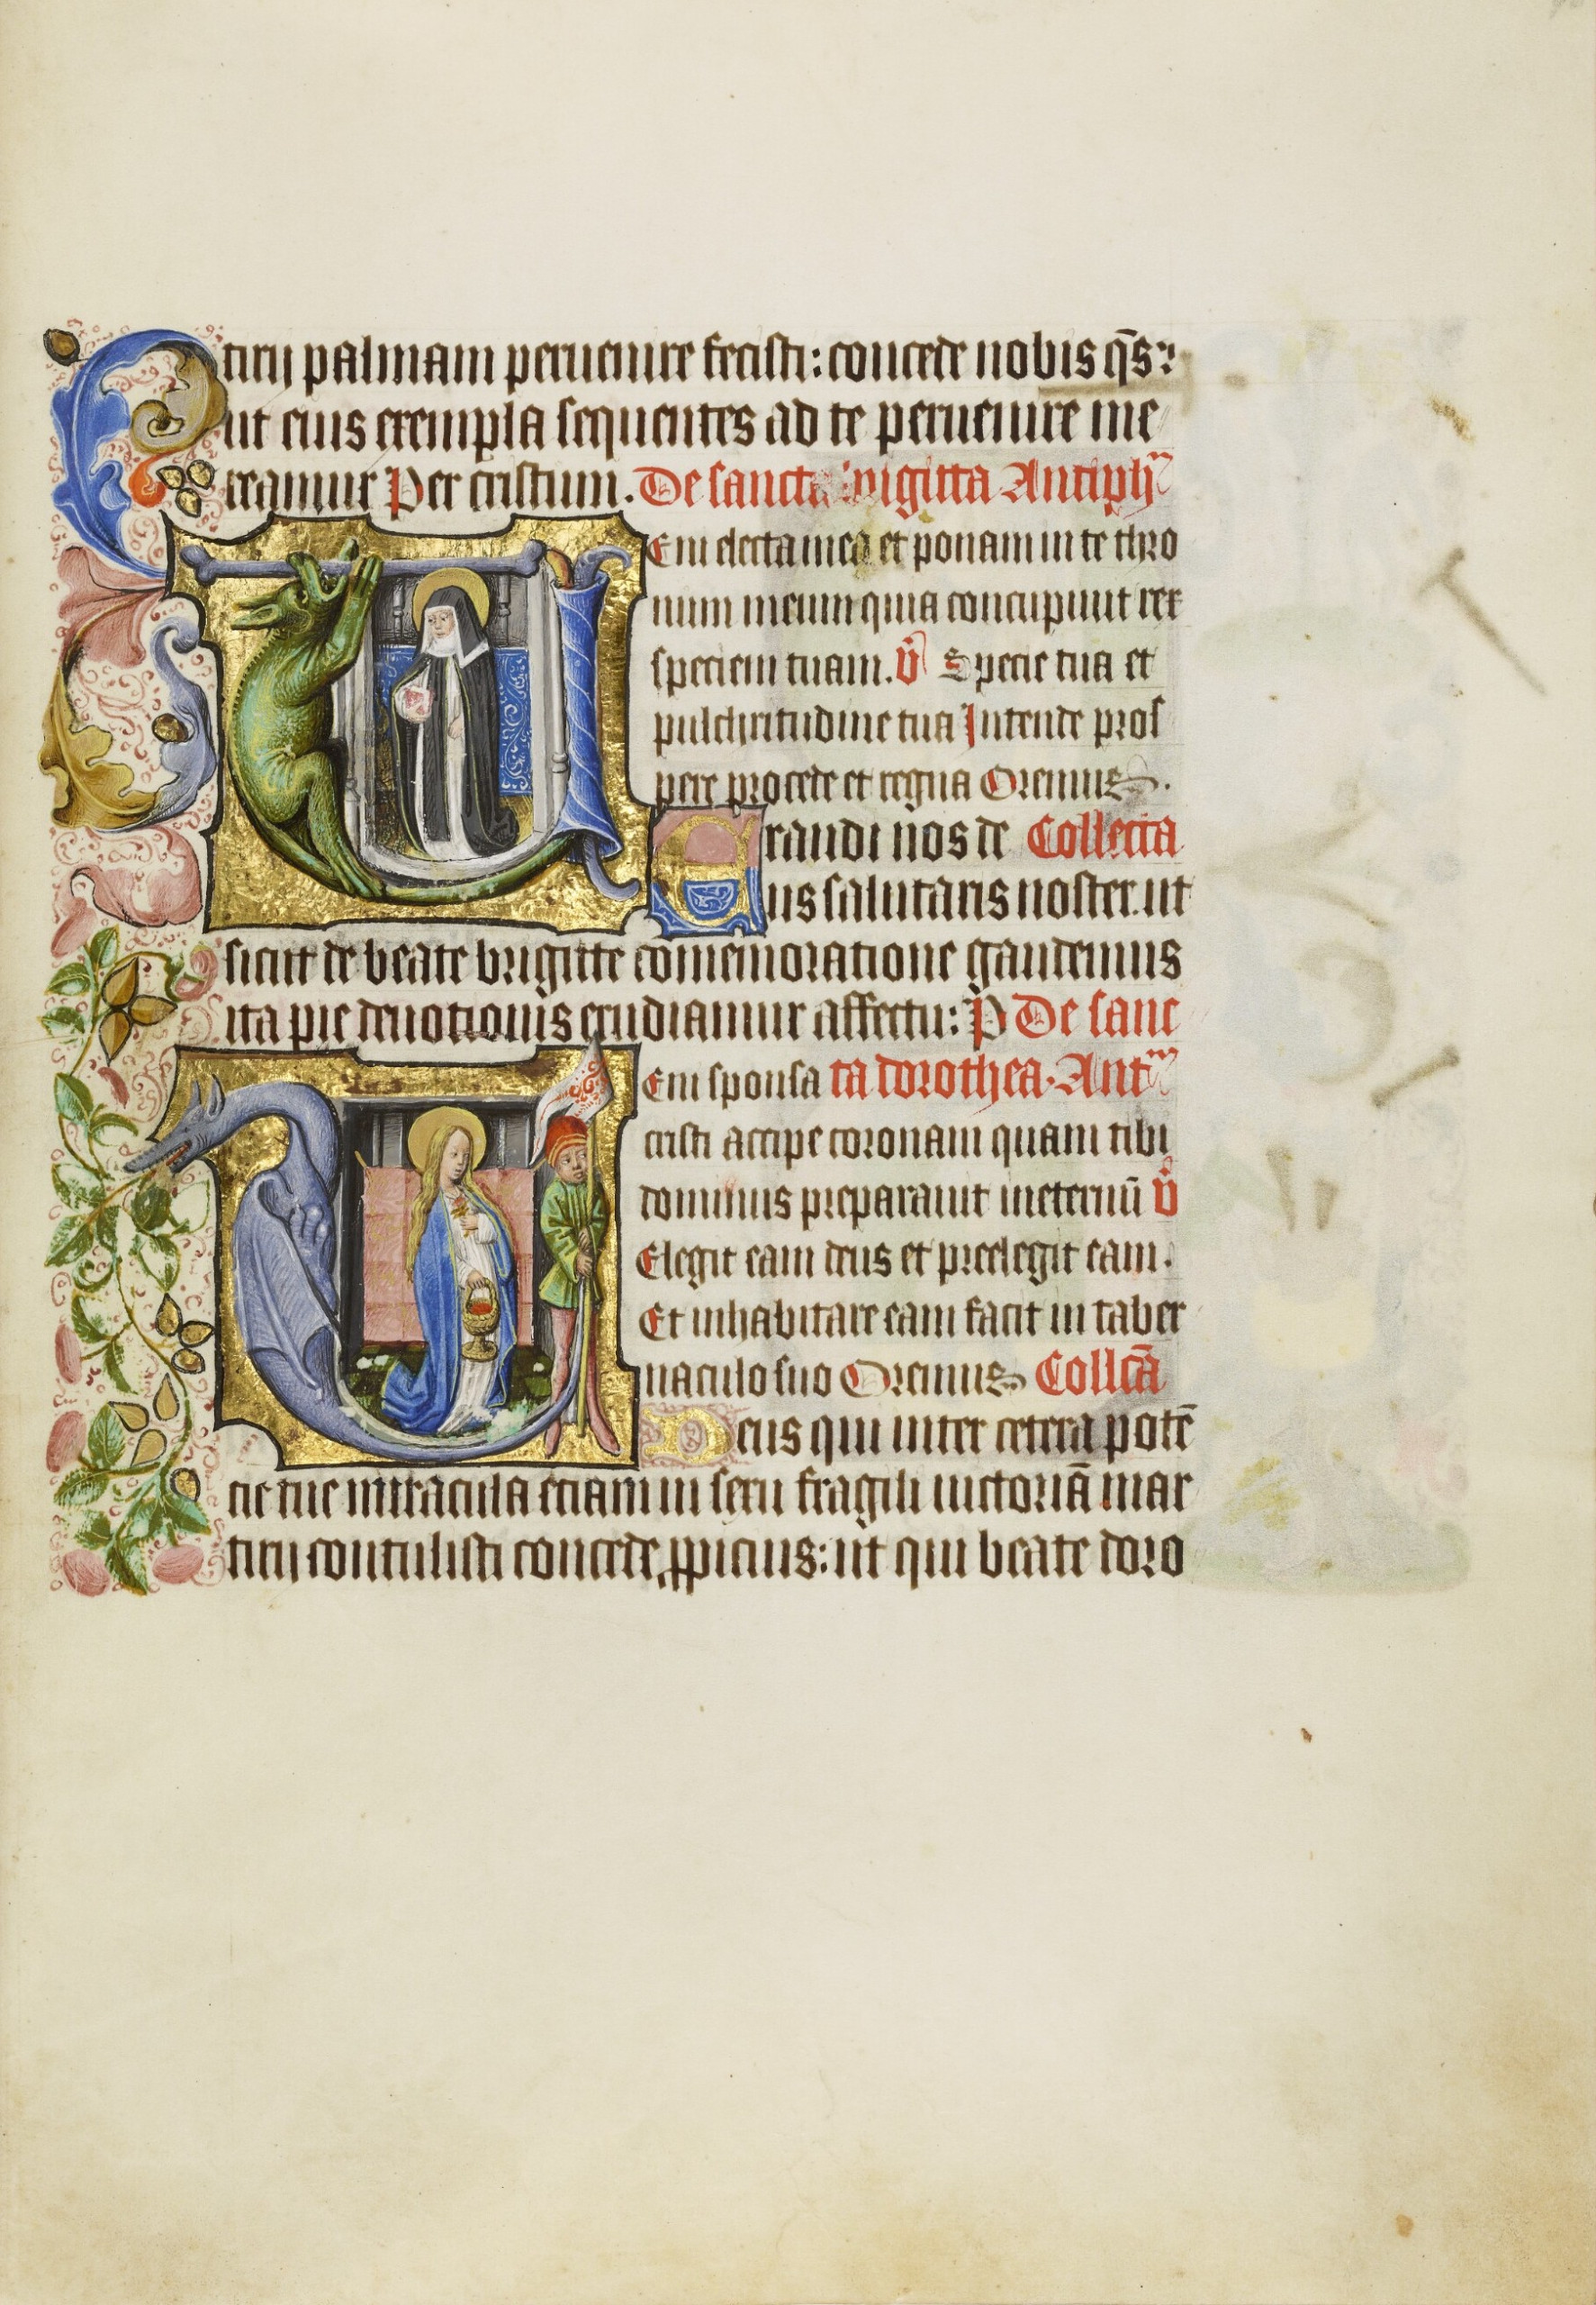 tirij palmam peruenire fecisti: concede nobis q̄s:
ut eius exempla sequentes ad te peruenire me
reamur Per cristum. De sancta brigitta Antiphᵐ
Veni electa mea et ponam in te thro
num meum quia concupiuit rex
speciem tuam. V̊ Specie tua et
pulchritudine tua Intende pros
pere procede et regna Oremus.
Exaudi nos de Collecta
us salutaris noster. ut
sicut de beate brigitte comemoratione gaudemus
ita pie deuotionis erudiamur affectu: P De sanc
Veni sponsa ta dorothea. Antᵐ
cristi accipe coronam quam tibi
dominus preparauit ineternū V̊
Elegit eam deus et preelegit eam.
Et inhabitare eam facit in taber
naculo suo Oremus Collc̄a
Deus qui inter cetera potē
cie tue miracula etiam in sexu fragili uictoriā mar
tirij contulisti concede ꝓpicius: ut qui beate doro